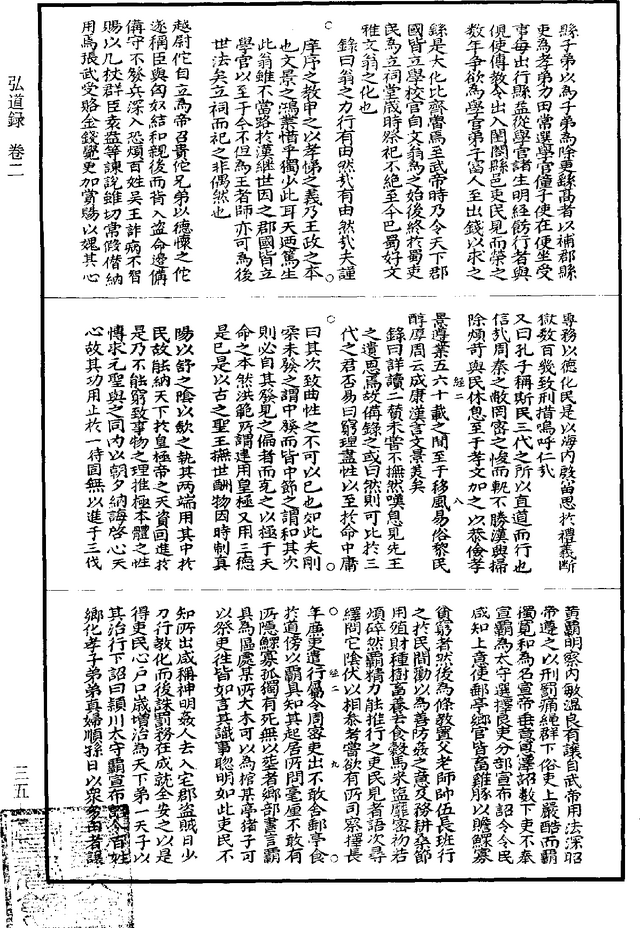 弘道録 卷二
三五
縣子弟以為子弟為除更縣高者以補郡縣
吏為孝弟力田常選學官僮子使在便坐受
事每出行縣益從學官諸生明經飭行者與
俱使傳教令出入閨閤縣邑吏民見而榮之
數年爭欲為學官弟子富人至出錢以求之
繇是大化比齊魯焉至武帝時乃令天下郡
國皆立學校官自文翁為之始後終於蜀吏
民為立祠堂歲時祭祀不絕至今巴蜀好文
雅文翁之化也
錄曰翁之力行有由然哉有由然哉夫謹
庠序之教申之以孝悌之義乃王政之本
也文景之鴻業惜乎獨少此耳天篤生
此翁雖不當路於漢繼世因之郡國皆立
學官以至于今不但為王者師亦可為後
世法矣立祠而祀之非偶然也
越尉佗自立為帝召貴佗兄弟以德懷之佗
遂稱臣與匈奴結和親後而背入盜命邊備
備守不發兵深入恐煩百姓吳王詐病不
賜以几杖群臣袁盎等諫說雖切常假借納
用焉張武受賂金錢覺更加賞賜以媿其心
專務以德化民是以海內殷富思於禮義斷
獄數百幾致刑措嗚呼仁哉
又曰孔子稱斯民三代之所以直道而行也
信哉周秦之敝罔密之悛而軌不勝漢興掃
除煩苛與民休息至于孝文加之以恭儉孝
景遵業五六十載之間至于移風易俗黎民
醇厚周云成康漢言文景美矣
錄曰詳讀二贊未嘗不撫然嘆息見先王
之遺思焉故備錄之或曰然則可比於三
代之君否易曰窮理盡性以至於命中庸
曰其次致曲性之不可以已也如此夫剛
柔未發之謂中發而皆中節之謂和其次
則必自其發見之偏者而克之以極于天
命之本然洪範所謂建用皇極又用三德
是已是以古之聖王撫世酬物因時制宜
陽以舒之陰以歛之執其兩端用其中於
民故能納天下於皇極帝之天資進於
是乃不能窮致事物之理推極本體之性
博求元聖與之同內以朝夕納誨啓心天
心故其功用止於一待固無以進于三代
經二
八
黃霸明察內敏溫良有讓自武帝用法深昭
帝遵之以刑罰痛繩群下俗吏上嚴酷而霸
獨寬和為名宣帝垂意恩澤詔數下吏不奉
宣霸為太守選擇良吏分部宣布詔令令民
咸知上意使郵亭鄉官皆畜雞豚以贍鰥寡
貧窮者然後為條教置父老師帥伍長班行
之於民間勸以為善防姦之意及務耕桑節
用殖財種樹畜養去食穀馬米鹽靡密初若
煩碎然霸精力能推行之吏民見者語次尋
繹問它陰伏以相參考嘗欲有所司察擇長
年廉吏遣行屬令周密吏出不敢舍郵亭食
於道傍以霸具知其起居所問毫釐不敢有
所隱鰥寡孤獨有死無以葬者鄉部書言霸
具為區處某所大木可以為棺某亭猪子可
以祭吏往皆如言其識事聰明如此吏民不
知所出咸稱神明姦人去入宅郡盜賊日少
力行教化而後誅罰務在成就全安之以是
得吏民心戶口歲增治為天下第一天子以
其治行下詔曰頴川太守霸宣布詔令百姓
鄉化孝子弟弟貞婦順孫日以眾多田者讓
經二
九